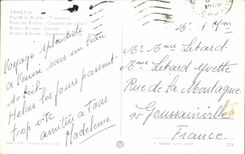 VENEZIA
Ponte di Rialto - Tramonto
Pont de Rialto - Coucher de soleil
Rialto Bridge - Sunset
Rialto
Voyage splendide
à Venise sous un beau
soleil
Hélas les jours passent
trop vite
amitiés à tous
Madeleine
Mme Letard
Mme Letard Yvette
Rue de la Montagne
Goussainville
France